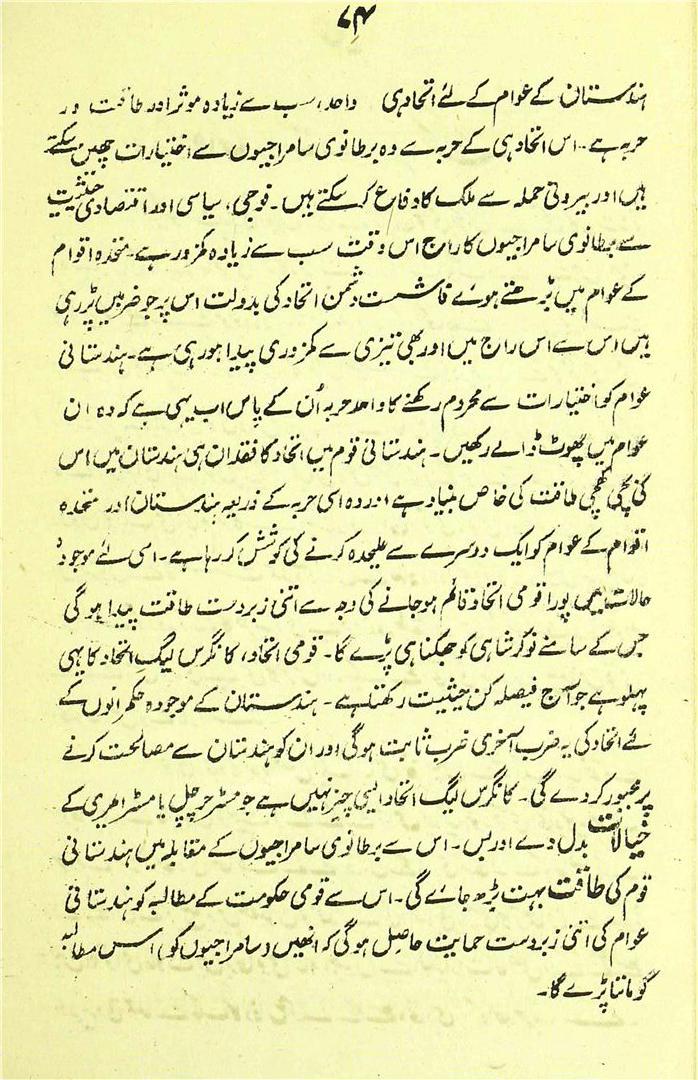 ۷۴
ہندستان کے عوام کے لئے اتحاد ہی واحد، سب سے زیادہ موثر اور طاقت ور
حربہ ہے۔ اس اتحاد ہی کے حربہ سے وہ برطانوی سامراجیوں سے اختیارات چھین سکتے
ہیں اور بیرونی حملہ سے ملک کا دفاع کر سکتے ہیں۔ فوجی، سیاسی اور اقتصادی حیثیت
سے برطانوی سامراجیوں کا راج اس وقت سب سے زیادہ کمزور ہے۔ متحدہ اقوام
کے عوام میں بڑھتے ہوئے فاشست دشمن اتحاد کی بدولت اس پر جو ضربیں پڑ رہی
ہیں اس سے اس راج میں اور بھی تیزی سے کمزوری پیدا ہو رہی ہے۔ ہندستانی
عوام کو اختیارات سے محروم رکھنے کا واحد حربہ اُن کے پاس اب یہی ہے کہ وہ ان
عوام میں پھوٹ ڈالے رکھیں۔ ہندستانی قوم میں اتحاد کا فقدان ہی ہندستان میں اس
کی بچی کھچی طاقت کی خاص بنیاد ہے اور وہ اسی حربہ کے ذریعہ ہندستان اور متحدہ
اقوام کے عوام کو ایک دوسرے سے علیحدہ کرنے کی کوشش کر رہا ہے۔ اسی لئے موجودہ
حالات میں پورا قومی اتحاد قائم ہو جانے کی وجہ سے اتنی زبردست طاقت پیدا ہوگی
جس کے سامنے نوکر شاہی کو جھکنا ہی پڑے گا۔ قومی اتحاد، کانگرس لیگ اتحاد کا یہی
پہلو ہے جو آج فیصلہ کن حیثیت رکھتا ہے۔ ہندستان کے موجودہ حکمرانوں کے
لئے اتحاد کی یہ ضرب آخری ضرب ثابت ہوگی اور ان کو ہندستان سے مصالحت کرنے
پر مجبور کر دے گی۔ کانگرس لیگ اتحاد ایسی چیز نہیں ہے جو مسٹر چرچل یا مسٹر امیری کے
خیالات بدل دے اور بس۔ اس سے برطانوی سامراجیوں کے مقابلہ میں ہندستانی
قوم کی طاقت بہت بڑھ جائے گی۔ اس سے قومی حکومت کے مطالبہ کو ہندستانی
عوام کی اتنی زبردست حمایت حاصل ہوگی کہ انھیں (سامراجیوں کو) اس مطالبہ
کو ماننا پڑے گا۔